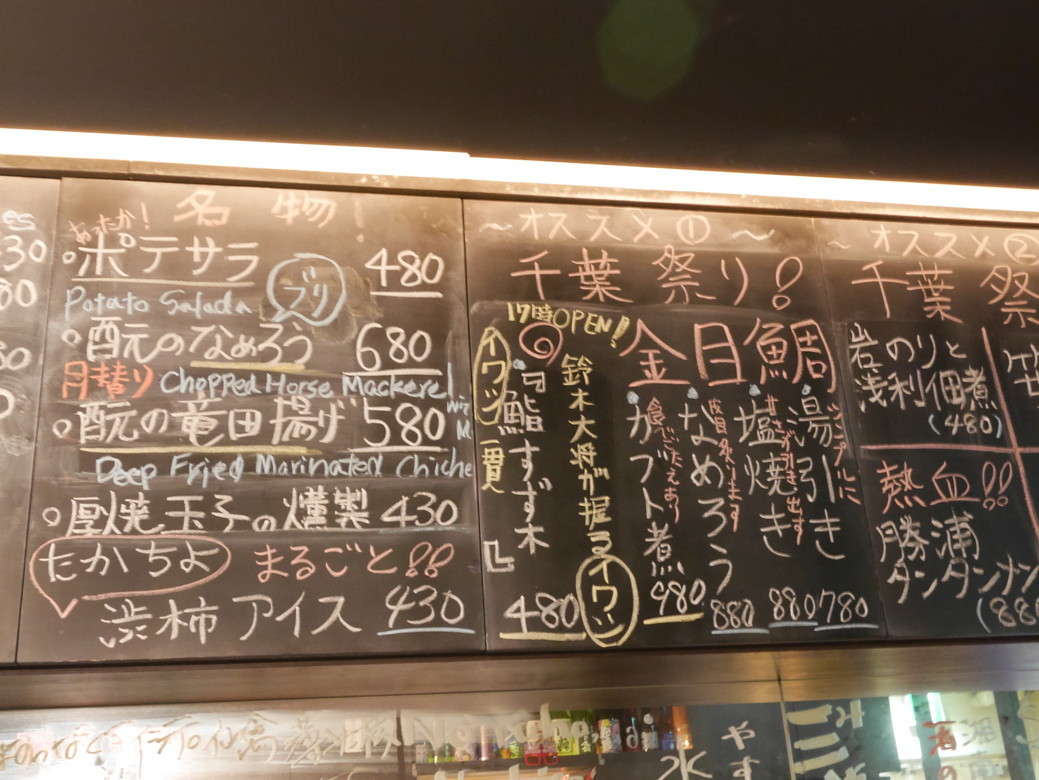 es
30
80
名物!
あったか!
ポテサラ 480
Potato Salada
ブリ
酛のなめろう 680
月替り Chopped Horse Mackerel
酛の竜田揚げ 580
Deep Fried Marinated Chiche
厚焼玉子の燻製 430
たかちよ まるごと!!
渋柿アイス 430
~オススメ①~
千葉祭り!
17時OPEN!
イワシ一貫
『鮨すず木』
480
鈴木大将が握るイワシ
金目鯛
シンプルに
湯引き
780
塩焼き
880
なめろう
880
食べごたえあり
カブト煮
980
~オススメ②
千葉祭
岩のりと
浅利佃煮
(480)
熱血!!
勝浦
タンタンナン
(880
水
やす
酒